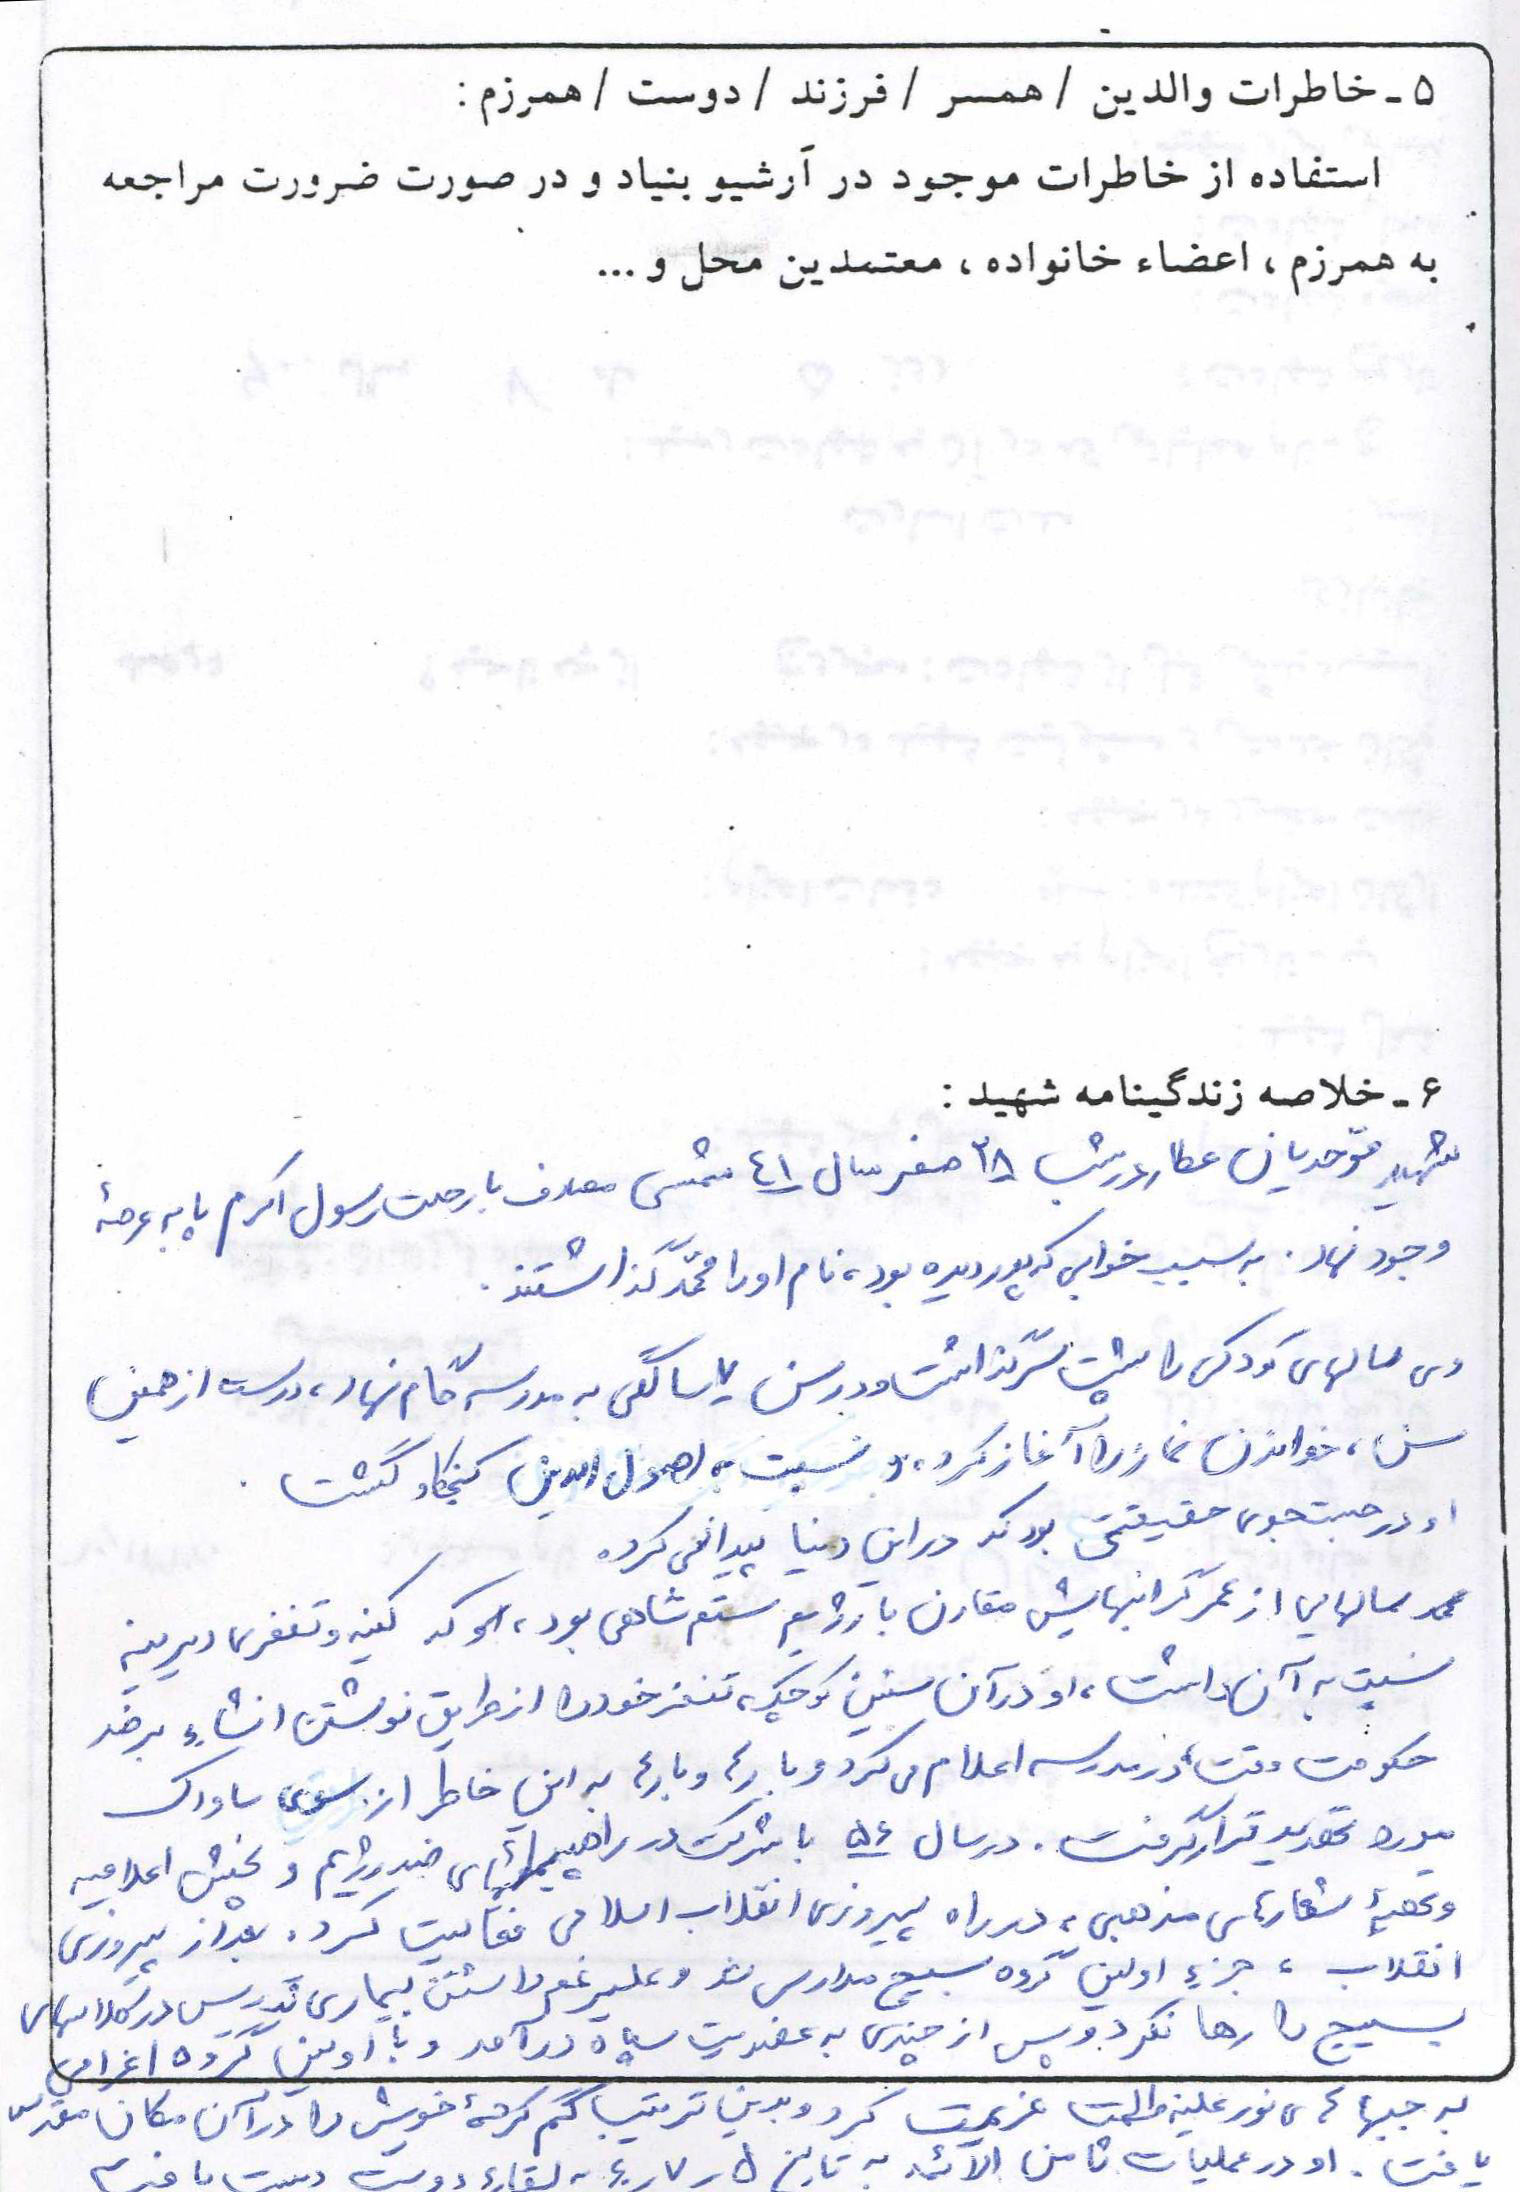 ۵ ـ خاطرات والدین / همسر / فرزند / دوست / همرزم :
استفاده از خاطرات موجود در آرشیو بنیاد و در صورت ضرورت مراجعه
به همرزم ، اعضاء خانواده ، معتمدین محل و ...
۶ ـ خلاصه زندگینامه شهید :
شهید موّحدیان عطار در شب ۲۸ صفر سال ۴۱ شمسی مصادف با رحلت رسول اکرم پا به عرصهٔ
وجود نهاد . به سبب خوابی که پدر دیده بود ، نام او را محمّد گذاشتند .
وی سالهای کودکی را پشت سر گذاشت و در سن ۷ سالگی به مدرسه گام نهاد ، درست از همین
سن ، خواندن نماز را آغاز کرد . و نسبت به اصول الدین کنجکاو گشت .
او در جستجوی حقیقتی بود که در این دنیا پیدا نمی کرد .
محمد سالهایی از عمر گرانبهایش مقارن با رژیم ستم شاهی بود ، او که کینه و تنفری دیرینه
نسبت به آن داشت ، او در آن سنین کوچک ، تنفر خود را از طریق نوشتن انشاء بر ضد
حکومت وقت ، در مدرسه اعلام می کرد و بارها و بارها به این خاطر از سوی ساواک
مورد تهدید قرار گرفت . در سال ۵۶ با شرکت در راهپیمائیهای ضد رژیم و پخش اعلامیه
و تهیهٔ شعارهای مذهبی ، در راه پیروزی انقلاب اسلامی فعالیت کرد . بعد از پیروزی
انقلاب ، جزء اولین گروه بسیج مدارس شد و علیرغم داشتن بیماری تدریس در کلاسهای
بسیج را رها نکرد و پس از چندی به عضویت سپاه درآمد و با اولین گروه اعزامی
به جبهه های نور علیه ظلمت عزیمت کرد و بدین ترتیب گم کردهٔ خویش را در آن مکان مقدس
یافت . او در عملیات ثامن الائمه به تاریخ ۵ ر ۷ ر ۶۰ به لقاء دوست دست یافت